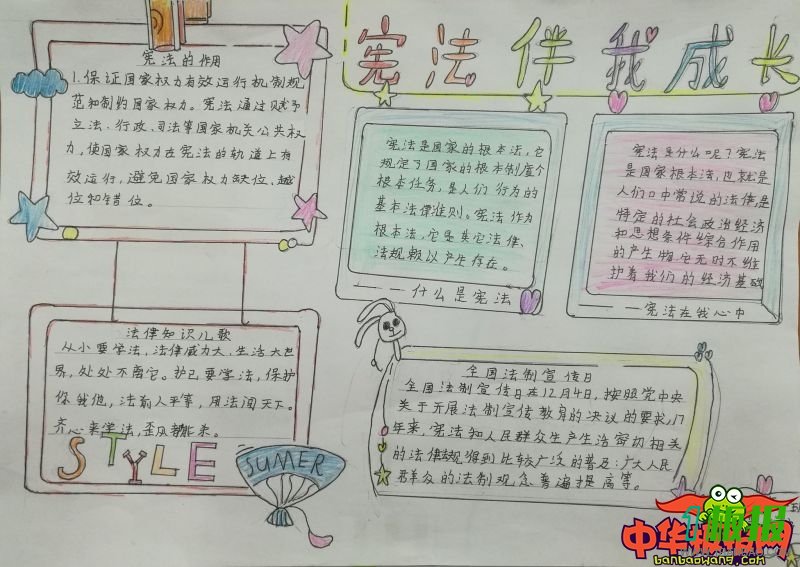 宪法伴我成长
宪法的作用
1.保证国家权力有效运行机制规
范和制约国家权力。宪法通过赋予
立法、行政、司法等国家机关公共权
力,使国家权力在宪法的轨道上有
效运行,避免国家权力缺位、越
位和错位。
宪法是国家的根本法,它
规定了国家的根本制度个
根本任务,是人们行为的
基本法律准则。宪法作为
根本法,它是其它法律、
法规赖以产生存在。
——什么是宪法
宪法是什么呢?宪法
是国家根本法,也就是
人们口中常说的法律,是
特定的社会政治经济
和思想条件综合作用
的产生物,它无时不维
护着我们的经济基础
——宪法在我心中
法律知识儿歌
从小要学法,法律威力大,生活大世
界,处处不离它。护己要学法,保护
你我他,法前人平事,用法闯天下。
齐心来学法,歪风
STYLE
SUMER
全国法制宣传日
全国法制宣传日在12月4日,按照党中央
关于开展法制宣传教育的决议的要求,17
年来,宪法知人民群众生产生活密切相关
的法律法规得到比较广泛的普及:广大人民
群众的法制观念普遍提高等。
中华板报网
banbaowang.com